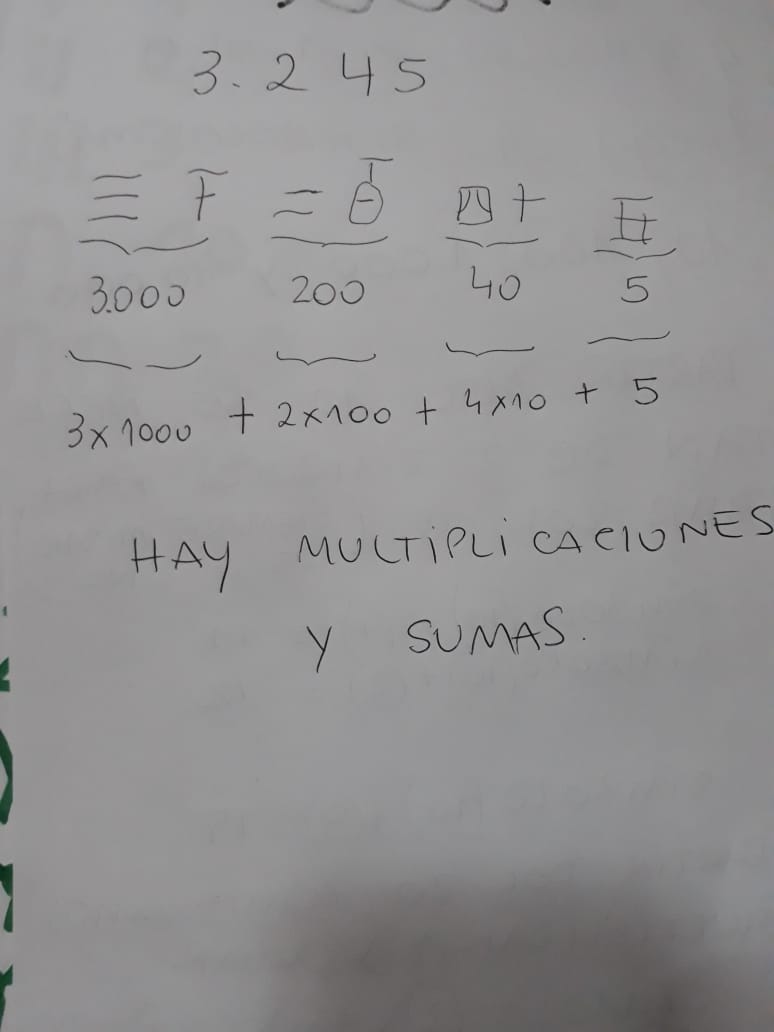 3.245
三千 二百 四十 五
3.000 200 40 5
3x1000 + 2x100 + 4x10 + 5
HAY MULTIPLICACIONES
Y SUMAS.